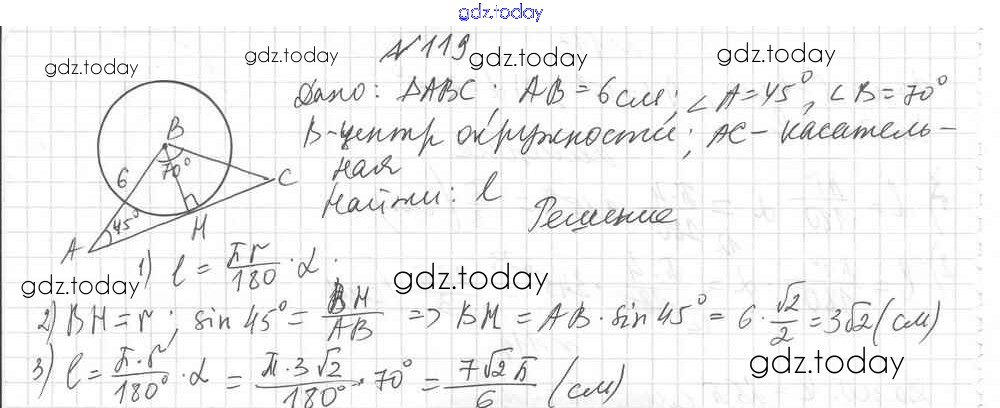 gdz.today
№ 119
gdz.today gdz.today gdz.today gdz.today
Дано: ΔABC; AB = 6 см; ∠A = 45°, ∠B = 70°
B - центр окружности; AC - касатель-
ная
Найти: l
Решение
B
70°
6
C
45°
H
A
1) l = πr/180 · α.
gdz.today gdz.today
2) BH = r; sin 45° = BH/AB => BH = AB · sin 45° = 6 · √2/2 = 3√2 (см)
gdz.today
3) l = π·r/180° · α = π·3√2/180° · 70° = 7√2 π/6 (см)